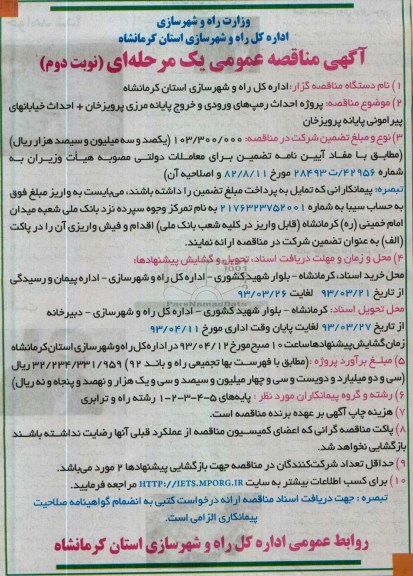 وزارت راه و شهرسازی
اداره کل راه و شهرسازی استان کرمانشاه
آگهی مناقصه عمومی یک مرحله‌ای (نوبت دوم)
۱) نام دستگاه مناقصه گزار: اداره کل راه و شهرسازی استان کرمانشاه
۲) موضوع مناقصه: پروژه احداث رمپ‌های ورودی و خروج پایانه مرزی پرویزخان + احداث خیابانهای
پیرامونی پایانه پرویزخان
۳) نوع و مبلغ تضمین شرکت در مناقصه: ۱۰۳/۳۰۰/۰۰۰ (یکصد و سه میلیون و سیصد هزار ریال)
(مطابق با مفاد آیین نامه تضمین برای معاملات دولتی مصوبه هیأت وزیران به
شماره ۴۲۹۵۶/ت ۲۸۴۹۳ مورخ ۸۲/۸/۱۱ و اصلاحیه آن)
تبصره: پیمانکارانی که تمایل به پرداخت مبلغ تضمین را داشته باشند، می‌بایست به واریز مبلغ فوق
به حساب سیبا به شماره ۲۱۷۶۴۲۳۷۵۲۰۰۱ به نام تمرکز وجوه سپرده نزد بانک ملی شعبه میدان
امام خمینی (ره) کرمانشاه (قابل واریز در کلیه شعب بانک ملی) اقدام و فیش واریزی آن را در پاکت
(الف) به عنوان تضمین شرکت در مناقصه ارائه نمایند.
۴) محل و زمان و مهلت دریافت اسناد، تحویل و گشایش پیشنهادها:
محل خرید اسناد: کرمانشاه - بلوار شهید کشوری - اداره کل راه و شهرسازی - اداره پیمان و رسیدگی
از تاریخ ۹۳/۰۳/۲۱ لغایت ۹۳/۰۳/۲۶
محل تحویل اسناد: کرمانشاه - بلوار شهید کشوری - اداره کل راه و شهرسازی - دبیرخانه
از تاریخ ۹۳/۰۳/۲۷ لغایت پایان وقت اداری مورخ ۹۳/۰۴/۱۱
زمان گشایش پیشنهادها ساعت ۱۰ صبح مورخ ۹۳/۰۴/۱۲ در اداره کل راه و شهرسازی استان کرمانشاه
۵) مبلغ برآورد پروژه: (مطابق با فهرست بها تجمیعی راه و باند ۹۲) ۳۲/۲۳۴/۳۳۱/۹۵۹ ریال
(سی و دو میلیارد و دویست و سی و چهار میلیون و سیصد و سی و یک هزار و نهصد و پنجاه و نه ریال)
۶) رشته و گروه پیمانکاران مورد نظر: پایه‌های ۵-۴-۳-۲-۱ رشته راه و ترابری
۷) هزینه چاپ آگهی بر عهده برنده مناقصه است.
۸) پاکت مناقصه گرانی که اعضای کمیسیون مناقصه از عملکرد قبلی آنها رضایت نداشته باشند
بازگشایی نخواهد شد.
۹) حداقل تعداد شرکت‌کنندگان در مناقصه جهت بازگشایی پیشنهادها ۲ مورد می‌باشد.
۱۰) برای کسب اطلاعات بیشتر به سایت HTTP://IETS.MPORG.IR مراجعه فرمایید.
تبصره: جهت دریافت اسناد مناقصه ارائه درخواست کتبی به انضمام گواهینامه صلاحیت
پیمانکاری الزامی است.
روابط عمومی اداره کل راه و شهرسازی استان کرمانشاه